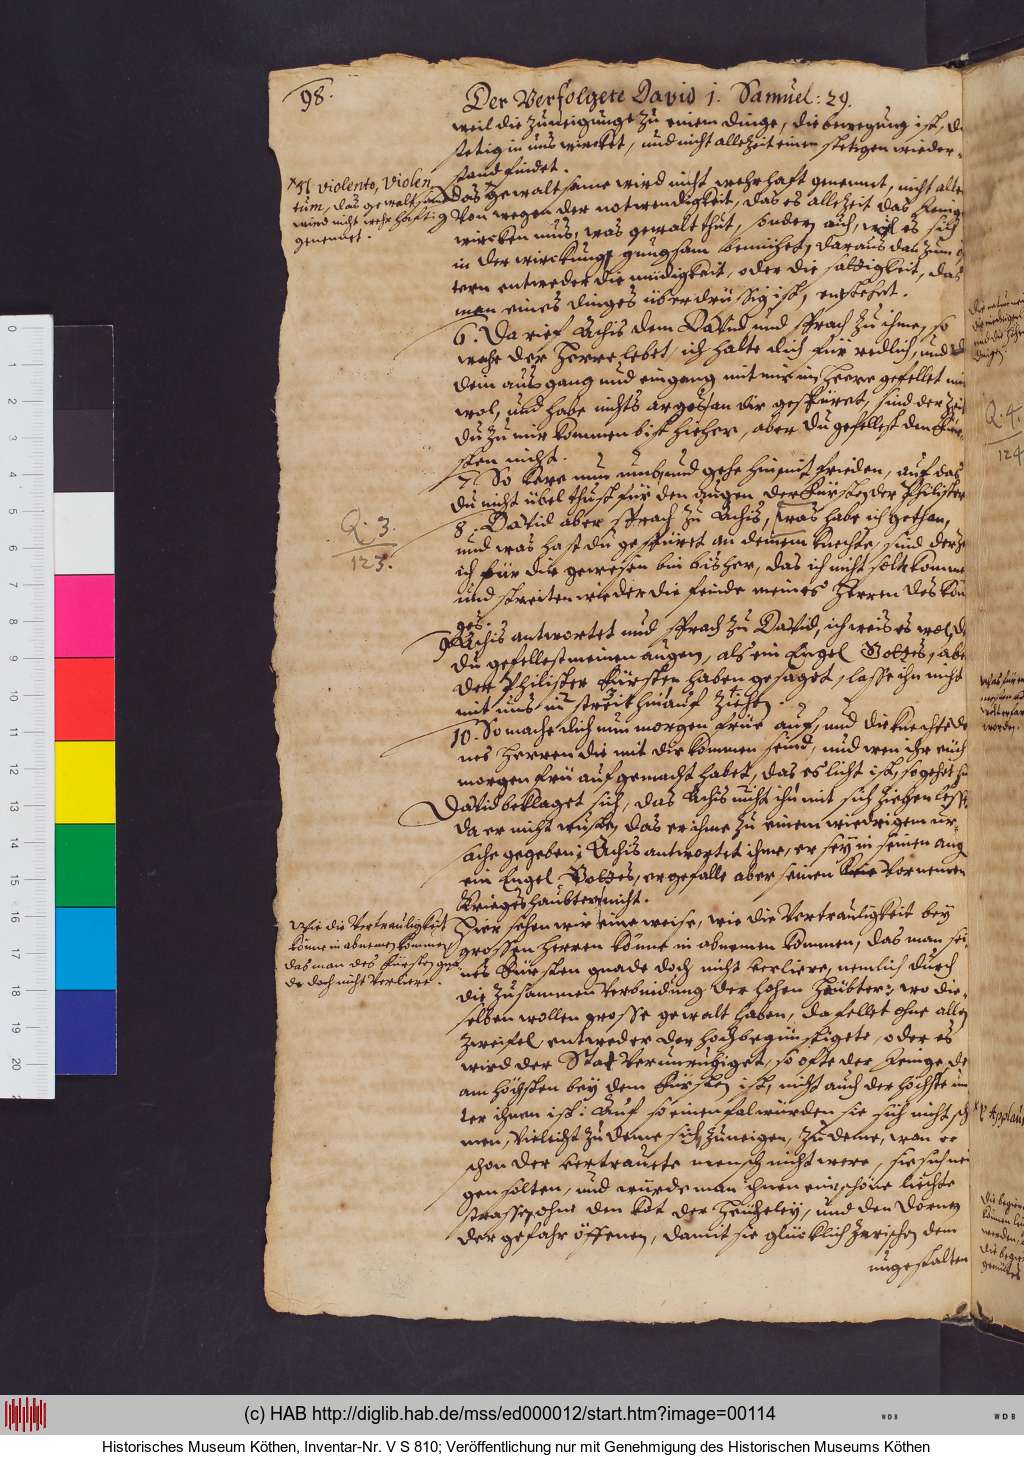 98.
Der Verfolgete David 1. Samuel: 29.
weil die zuneigunge zu einem dinge, die bewegung ist, die
stetig in uns wircket, und nicht allezeit einen stetigen wieder-
stand findet.
Il violento, violen
tum, das gewaltsame
wird nicht wehrhafftig
genennet.
Das gewaltsame wird nicht wehrhaft genennet, nicht allei
von wegen der notwendigkeit, das es allezeit das jenige
wircken mus, was gewalt thut, sondern auch, weil es sich
in der wirckung gnugsam bemühet, daraus dan zum
tern entweder die müdigkeit, oder die sattigkeit, das
man eines dinges überdrüssig ist, entstehet.
6. Da rief Achis dem David und sprach zu ihme, so
wahr der Herre lebet, ich halte dich für redlich, und
dein ausgang und eingang mit mir im Heere gefellet mir
wol, und habe nichts arges an dir gespüret, sind der zeit
du zu mir kommen bist hieher, aber du gefellest den Für-
sten nicht.
7. So kere nun umb, und gehe hin mit frieden, auf das
du nicht übel thust für den augen der Fürsten der Philister
8. David aber sprach zu Achis, was habe ich gethan,
und was hast du gespüret an deinem knechte, sind der ze
ich für dir gewesen bin bisher, das ich nicht solte komme
und streiten wieder die feinde meines Herren des Kön
ges.
9. Achis antwortet und sprach zu David, ich weis es wol, d
du gefellest meinen augen, als ein Engel Gottes, abe
der Philister Fürsten haben gesaget, lasse ihn nicht
mit uns in streit hinauf ziehen.
10. So mache dich nun morgen früe auf, und die knechte de
nes Herren die mit dir kommen seind, und wen ihr euch
morgen frü aufgemacht habet, das es licht ist, so gehet hi
David beklaget sich, das Achis nicht ihn mit sich ziehen lesse
da er nicht wuste, das er ihme zu einem wiedrigem ur-
sache gegeben; Achis antwortet ihme, er sey in seinen aug
ein Engel Gottes, er gefalle aber seinen vornemen
Kriegeshaubtern nicht.
Q. 3.
123.
Wie die Vertrauligkeit
könne in abnemen kommen
das man des Fürsten gna
de doch nicht verliere.
Hier sehen wir eine weise, wie die Vertrauligkeit bey
grossen Herren könne in abnemen kommen, das man sei-
nes Fürsten gnade doch nicht verliere, nemlich durch
die zusammen verbindung der hohen Häubter; wo die-
selben wollen grosse gewalt haben, da fellet ohne allen
zweifel, entweder der hochbegünstigete, oder es
wird der Stat verunruhiget, so ofte der jenige, de
am höchsten bey dem Fürsten ist, nicht auch der höchste un
ter ihnen ist: Auf so einen fal würden sie sich nicht sch
men, vieleicht zu deme sich zuneigen, zu deme, wan er
schon der vertrauete mensch nicht were, sie sich nei
gen solten, und würde man ihnen eine schöne liechte
strasse, ohne den kot der Heücheley, und den dornen
der gefahr öffenen, damit sie glücklich zwischen dem
ungestalten
Q. 4.
124
Applaus
(c) HAB http://diglib.hab.de/mss/ed000012/start.htm?image=00114
Historisches Museum Köthen, Inventar-Nr. V S 810; Veröffentlichung nur mit Genehmigung des Historischen Museums Köthen